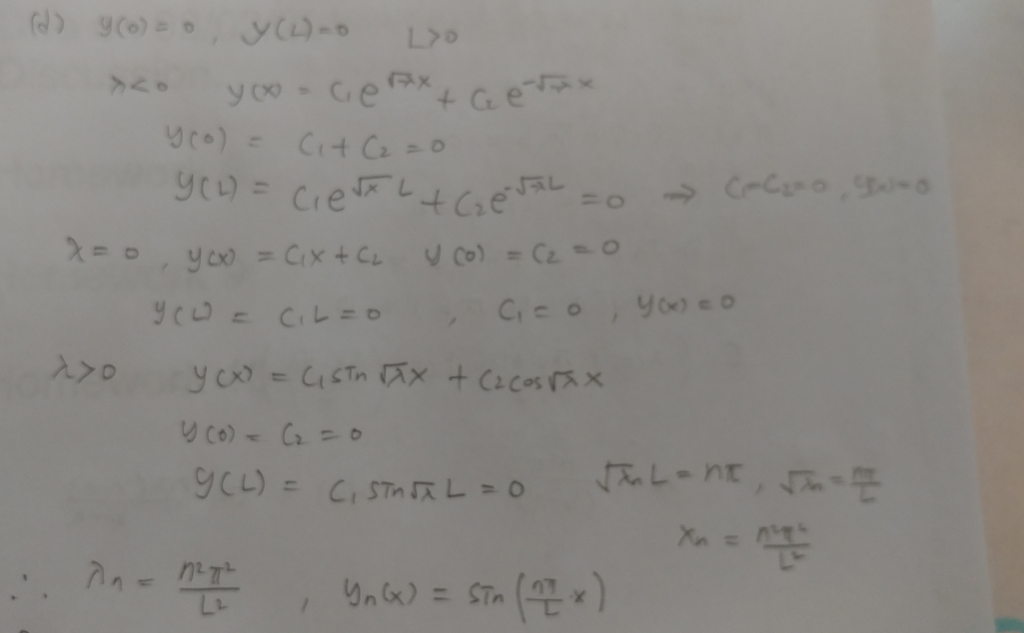 (d) y(0) = 0, y(L) = 0 L>0
λ<0 y(x) = C₁e^{√-λx} + C₂e^{-√-λx}
y(0) = C₁ + C₂ = 0
y(L) = C₁e^{√-λ L} + C₂e^{-√-λL} = 0 → C₁=C₂=0, y(x)=0
λ = 0, y(x) = C₁x + C₂ y(0) = C₂ = 0
y(L) = C₁L = 0, C₁ = 0, y(x) = 0
λ>0 y(x) = C₁sin√λx + C₂cos√λx
y(0) = C₂ = 0
y(L) = C₁sin√λ L = 0 √λₙL = nπ, √λₙ = nπ/L
λₙ = n²π²/L²
∴ λₙ = n²π²/L², yₙ(x) = sin(nπ/L x)